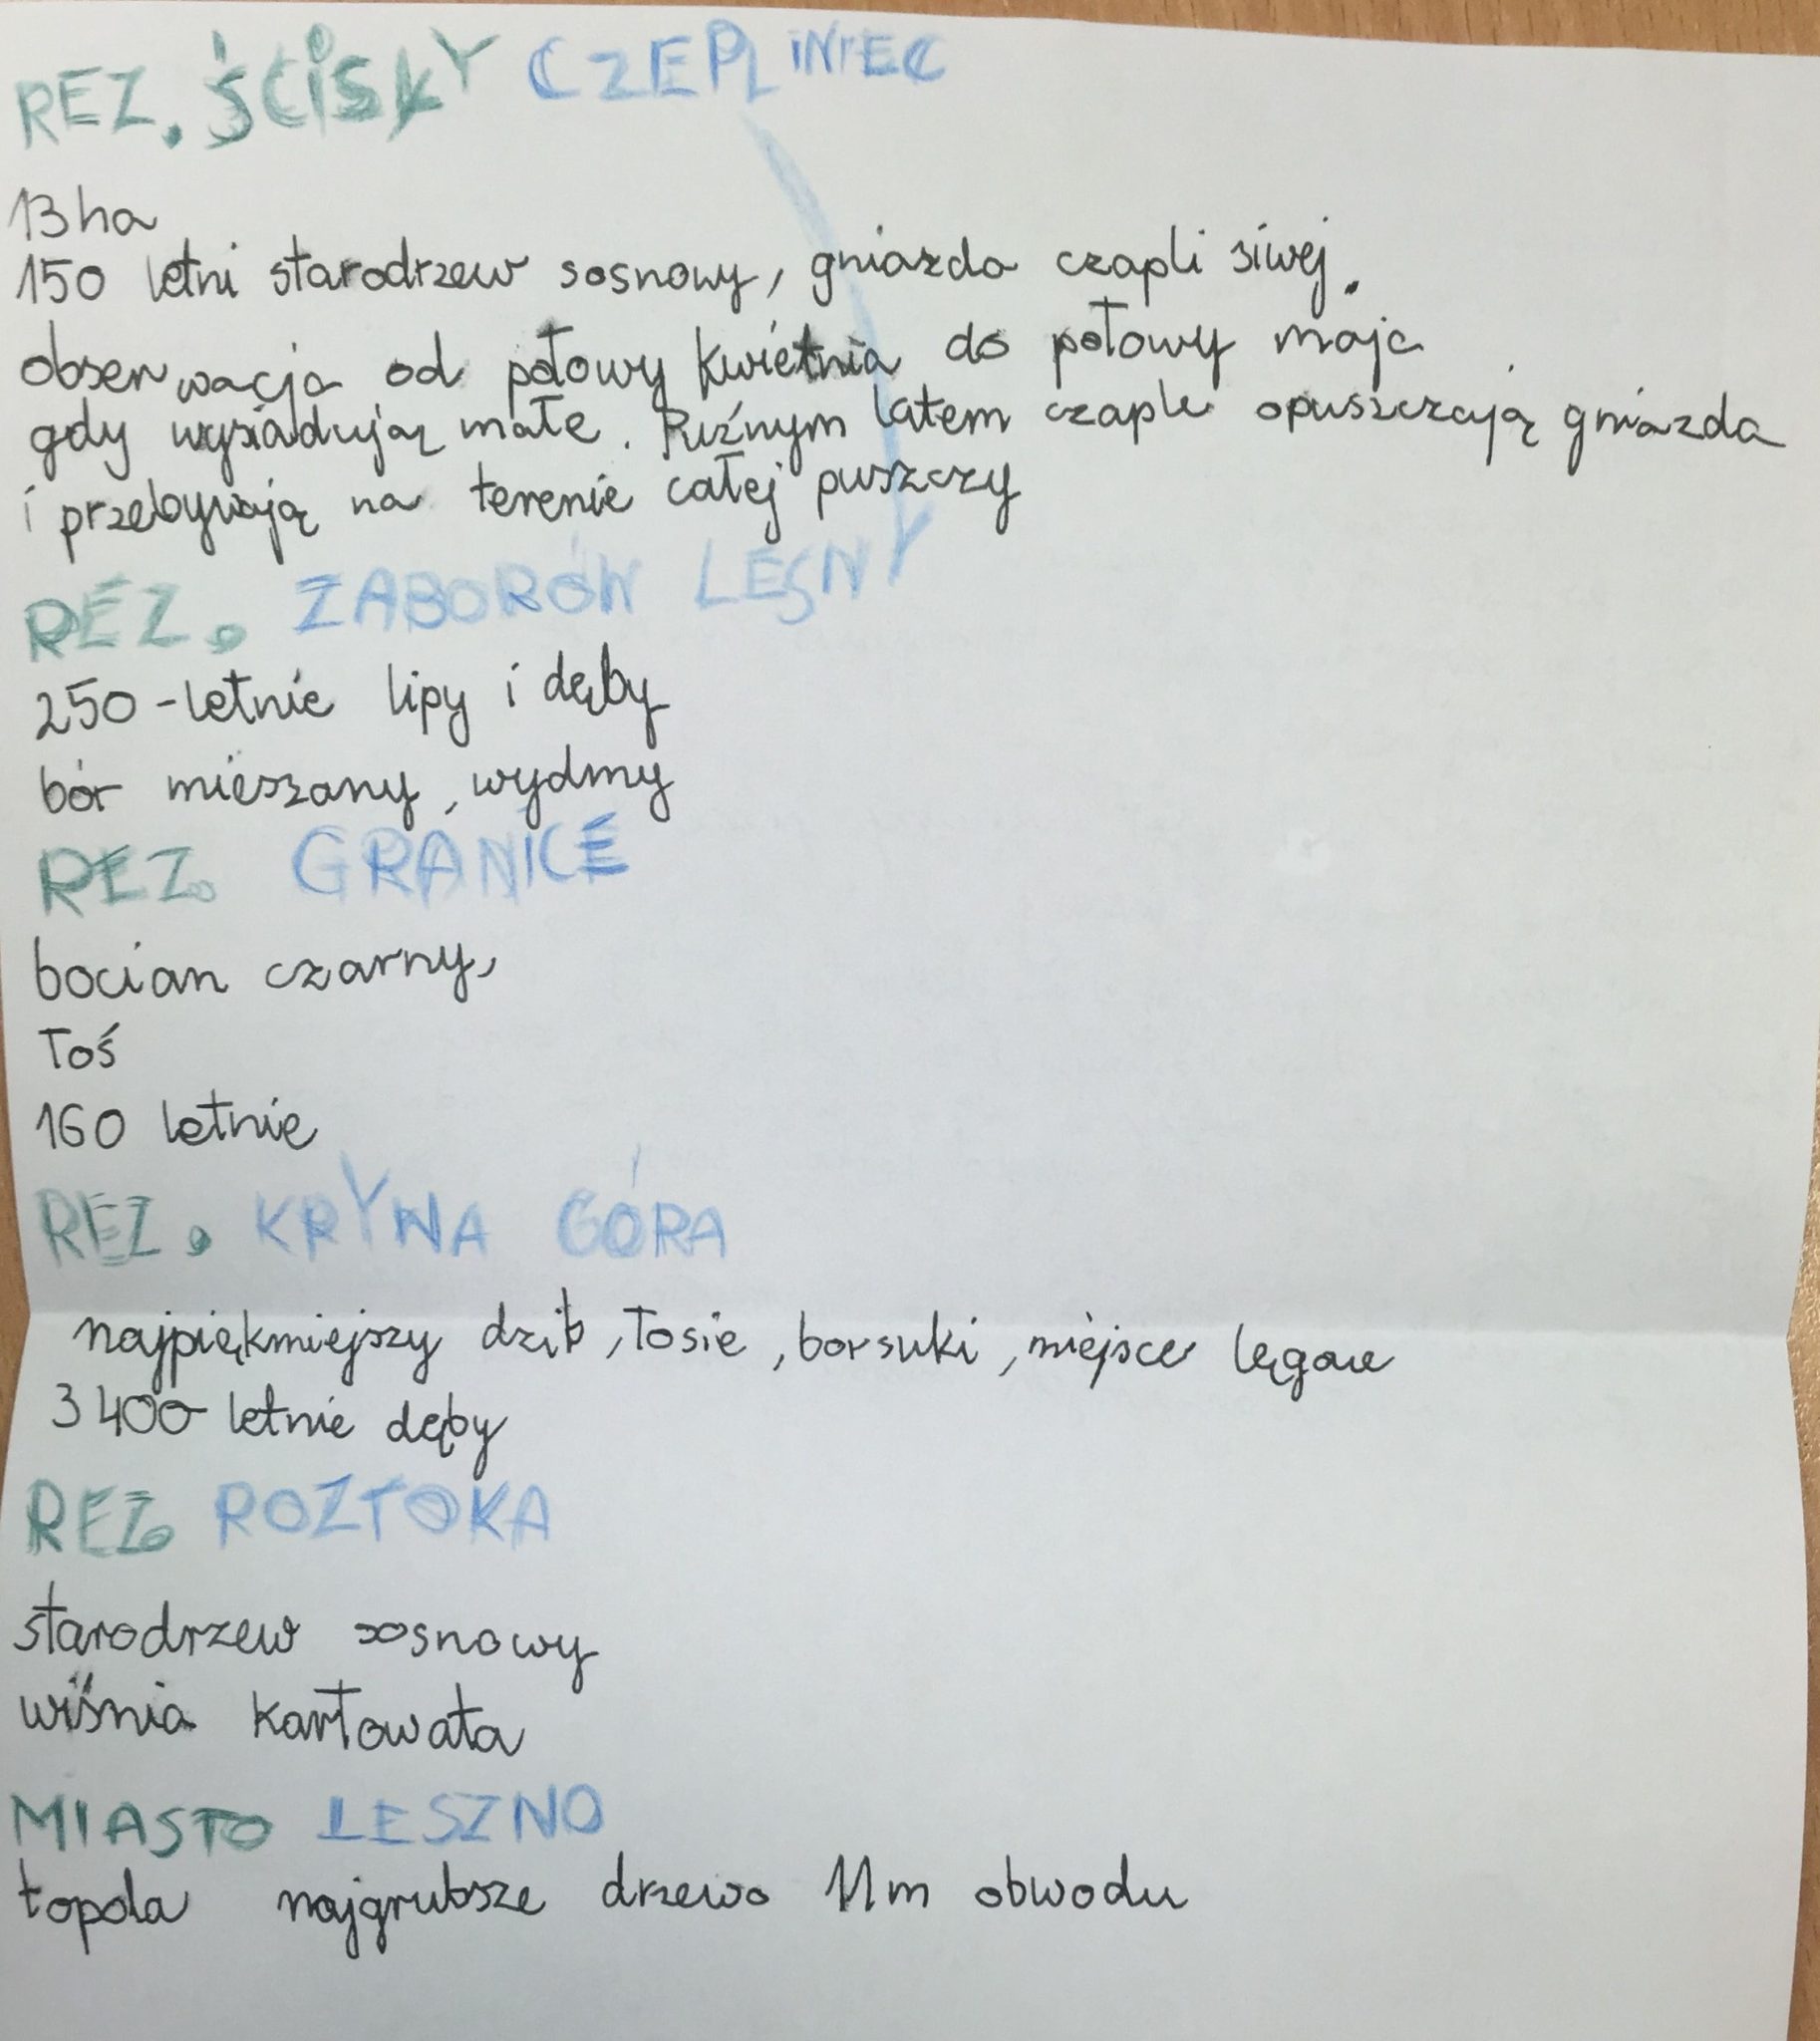 REZ. ŚCISŁY CZEPLINIEC
13 ha
150 letni starodrzew sosnowy, gniazda czapli siwej.
obserwacja od połowy kwietnia do połowy maja
gdy wysiadują małe. Puźnym latem czaple opuszczają gniazda
i przebywają na terenie całej puszczy
REZ. ZABORÓW LEŚNY
250-letnie lipy i dęby
bór mieszany, wydmy
REZ. GRANICE
bocian czarny,
łoś
160 letnie
REZ. KRYWA GÓRA
najpiękmiejszy dzik, łosie, borsuki, miejsce lęgowe
3 400 letnie dęby
REZ. ROZTOKA
starodrzew sosnowy
wiśnia karłowata
MIASTO LESZNO
topola najgrubsze drzewo 11m obwodu